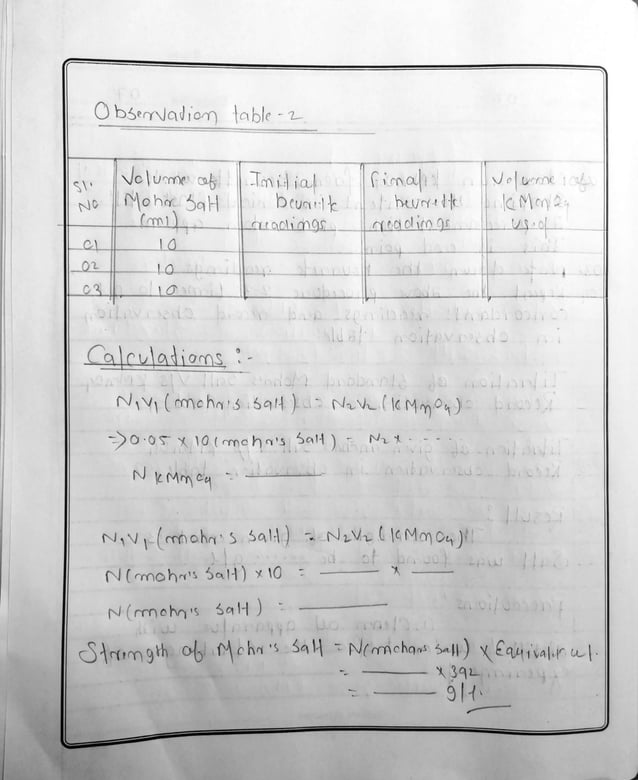 Observation table - 2
Sl. No | Volume of Mohr Salt (ml) | Initial beurette readings | Final beurette readings | Volume of KMnO4 used
01 | 10
02 | 10
03 | 10
Calculations :-
N1V1 (mohr's salt) = N2V2 (KMnO4)
=> 0.05 x 10 (mohr's salt) = N2 x - - - -
N KMnO4 = ______
N1V1 (mohr's salt) = N2V2 (KMnO4)
N (mohr's salt) x 10 = ______ x ______
N (mohr's salt) = ______
Strength of Mohr's salt = N(mohars salt) x Equivalent wt.
= ______ x 392
= ______ g/l.